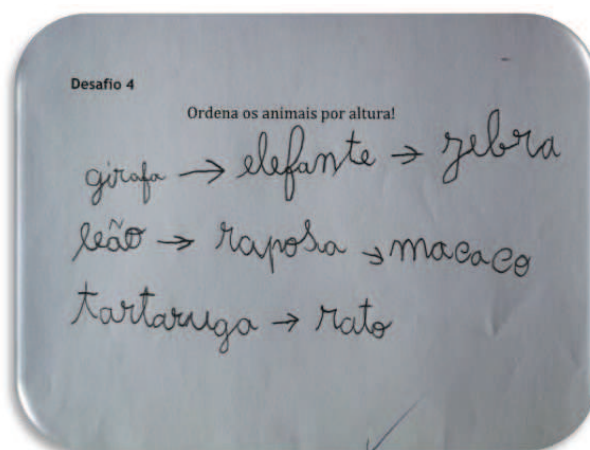 Desafio 4
Ordena os animais por altura!
girafa → elefante → zebra
leão → raposa → macaco
tartaruga → rato